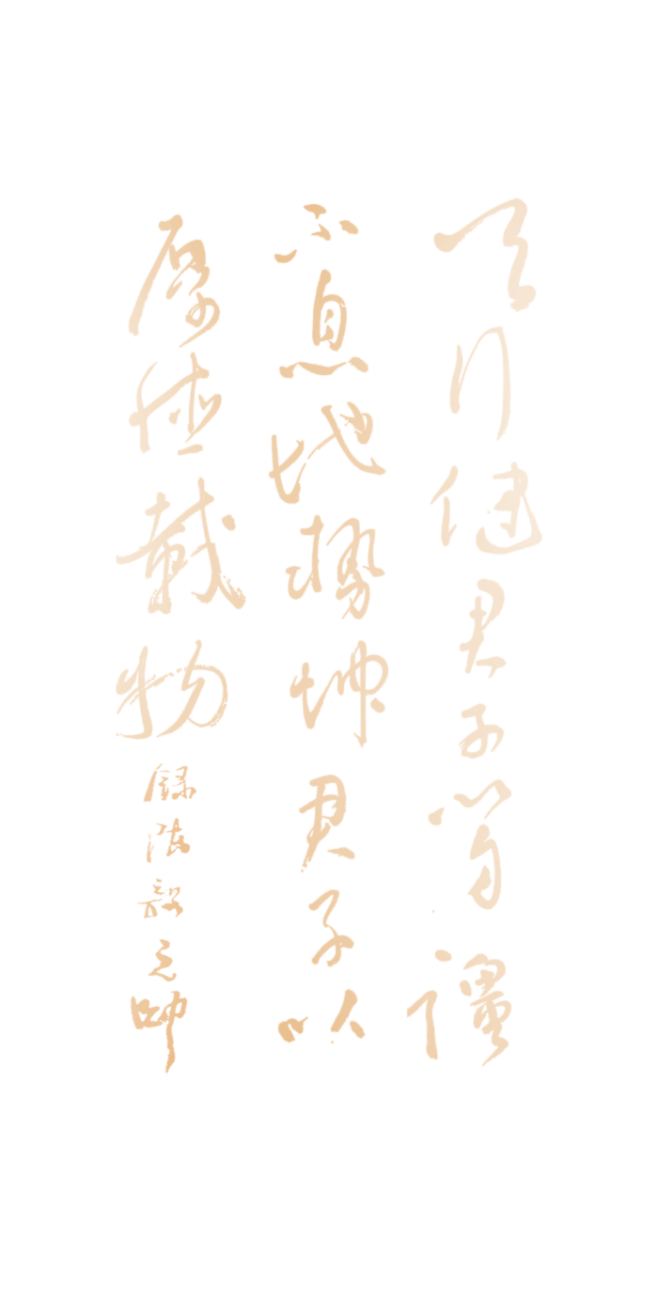 天行健君子以自彊
不息地勢坤君子以
厚德載物
錄陳毅元帥